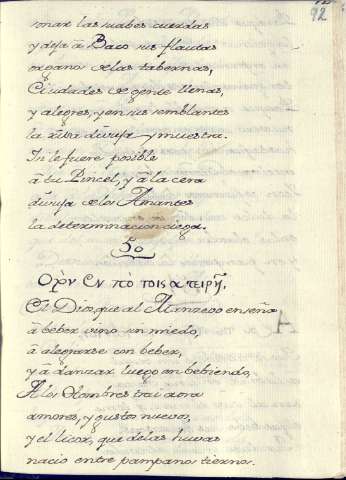 92
sonar las suabes cuerdas
y deja â Baco sus flautas
organo de las tabernas,
Ciudades de gente llenas,
y alegres, y en sus semblantes
la risa dibuja y muestra.
I si le fuere posible
â tu Pincel, y â la cera
dibuja de los Amantes
la determinacion ciega.
50
El Dios, que al Mancevo enseña
â beber vino sin miedo,
â alegrarse con beber,
y â danzar luego en bebiendo,
A los Hombres trai aora
amores, y gustos nuevos,
y el licor, que de las huvas
nacio entre pampano tierno.